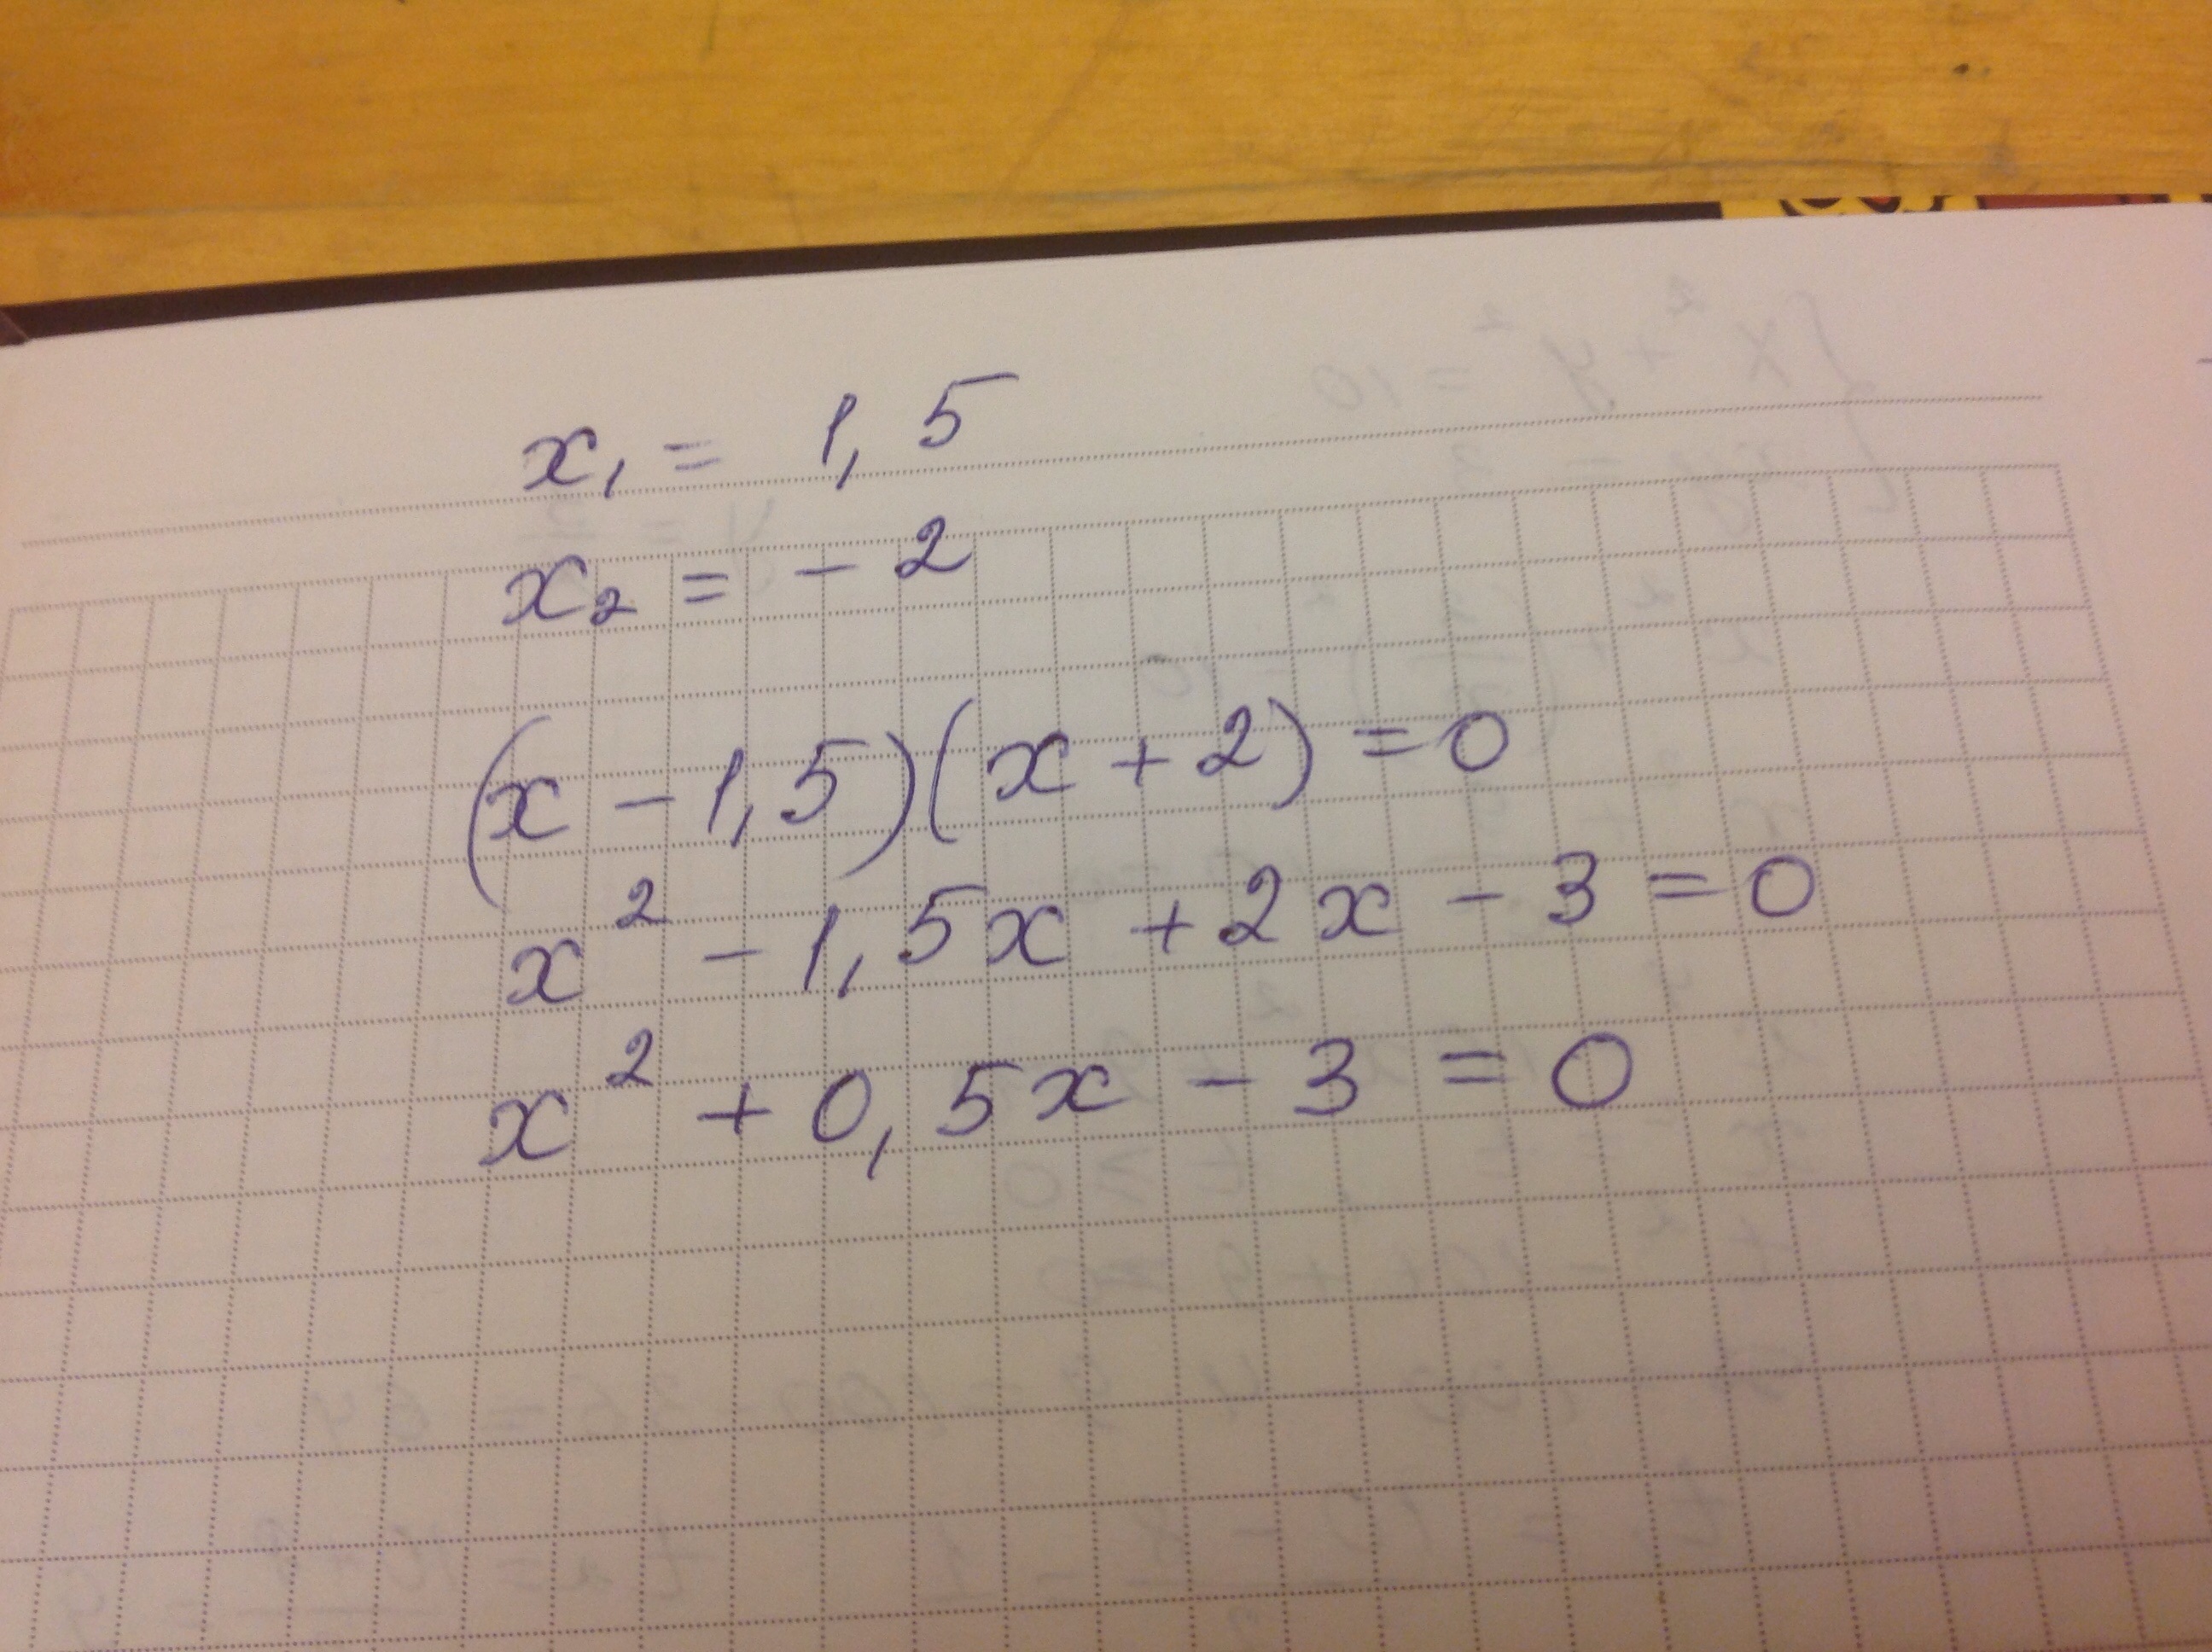 x₁ = 1,5
x₂ = - 2
(x - 1,5)(x + 2) = 0
x² - 1,5x + 2x - 3 = 0
x² + 0,5x - 3 = 0